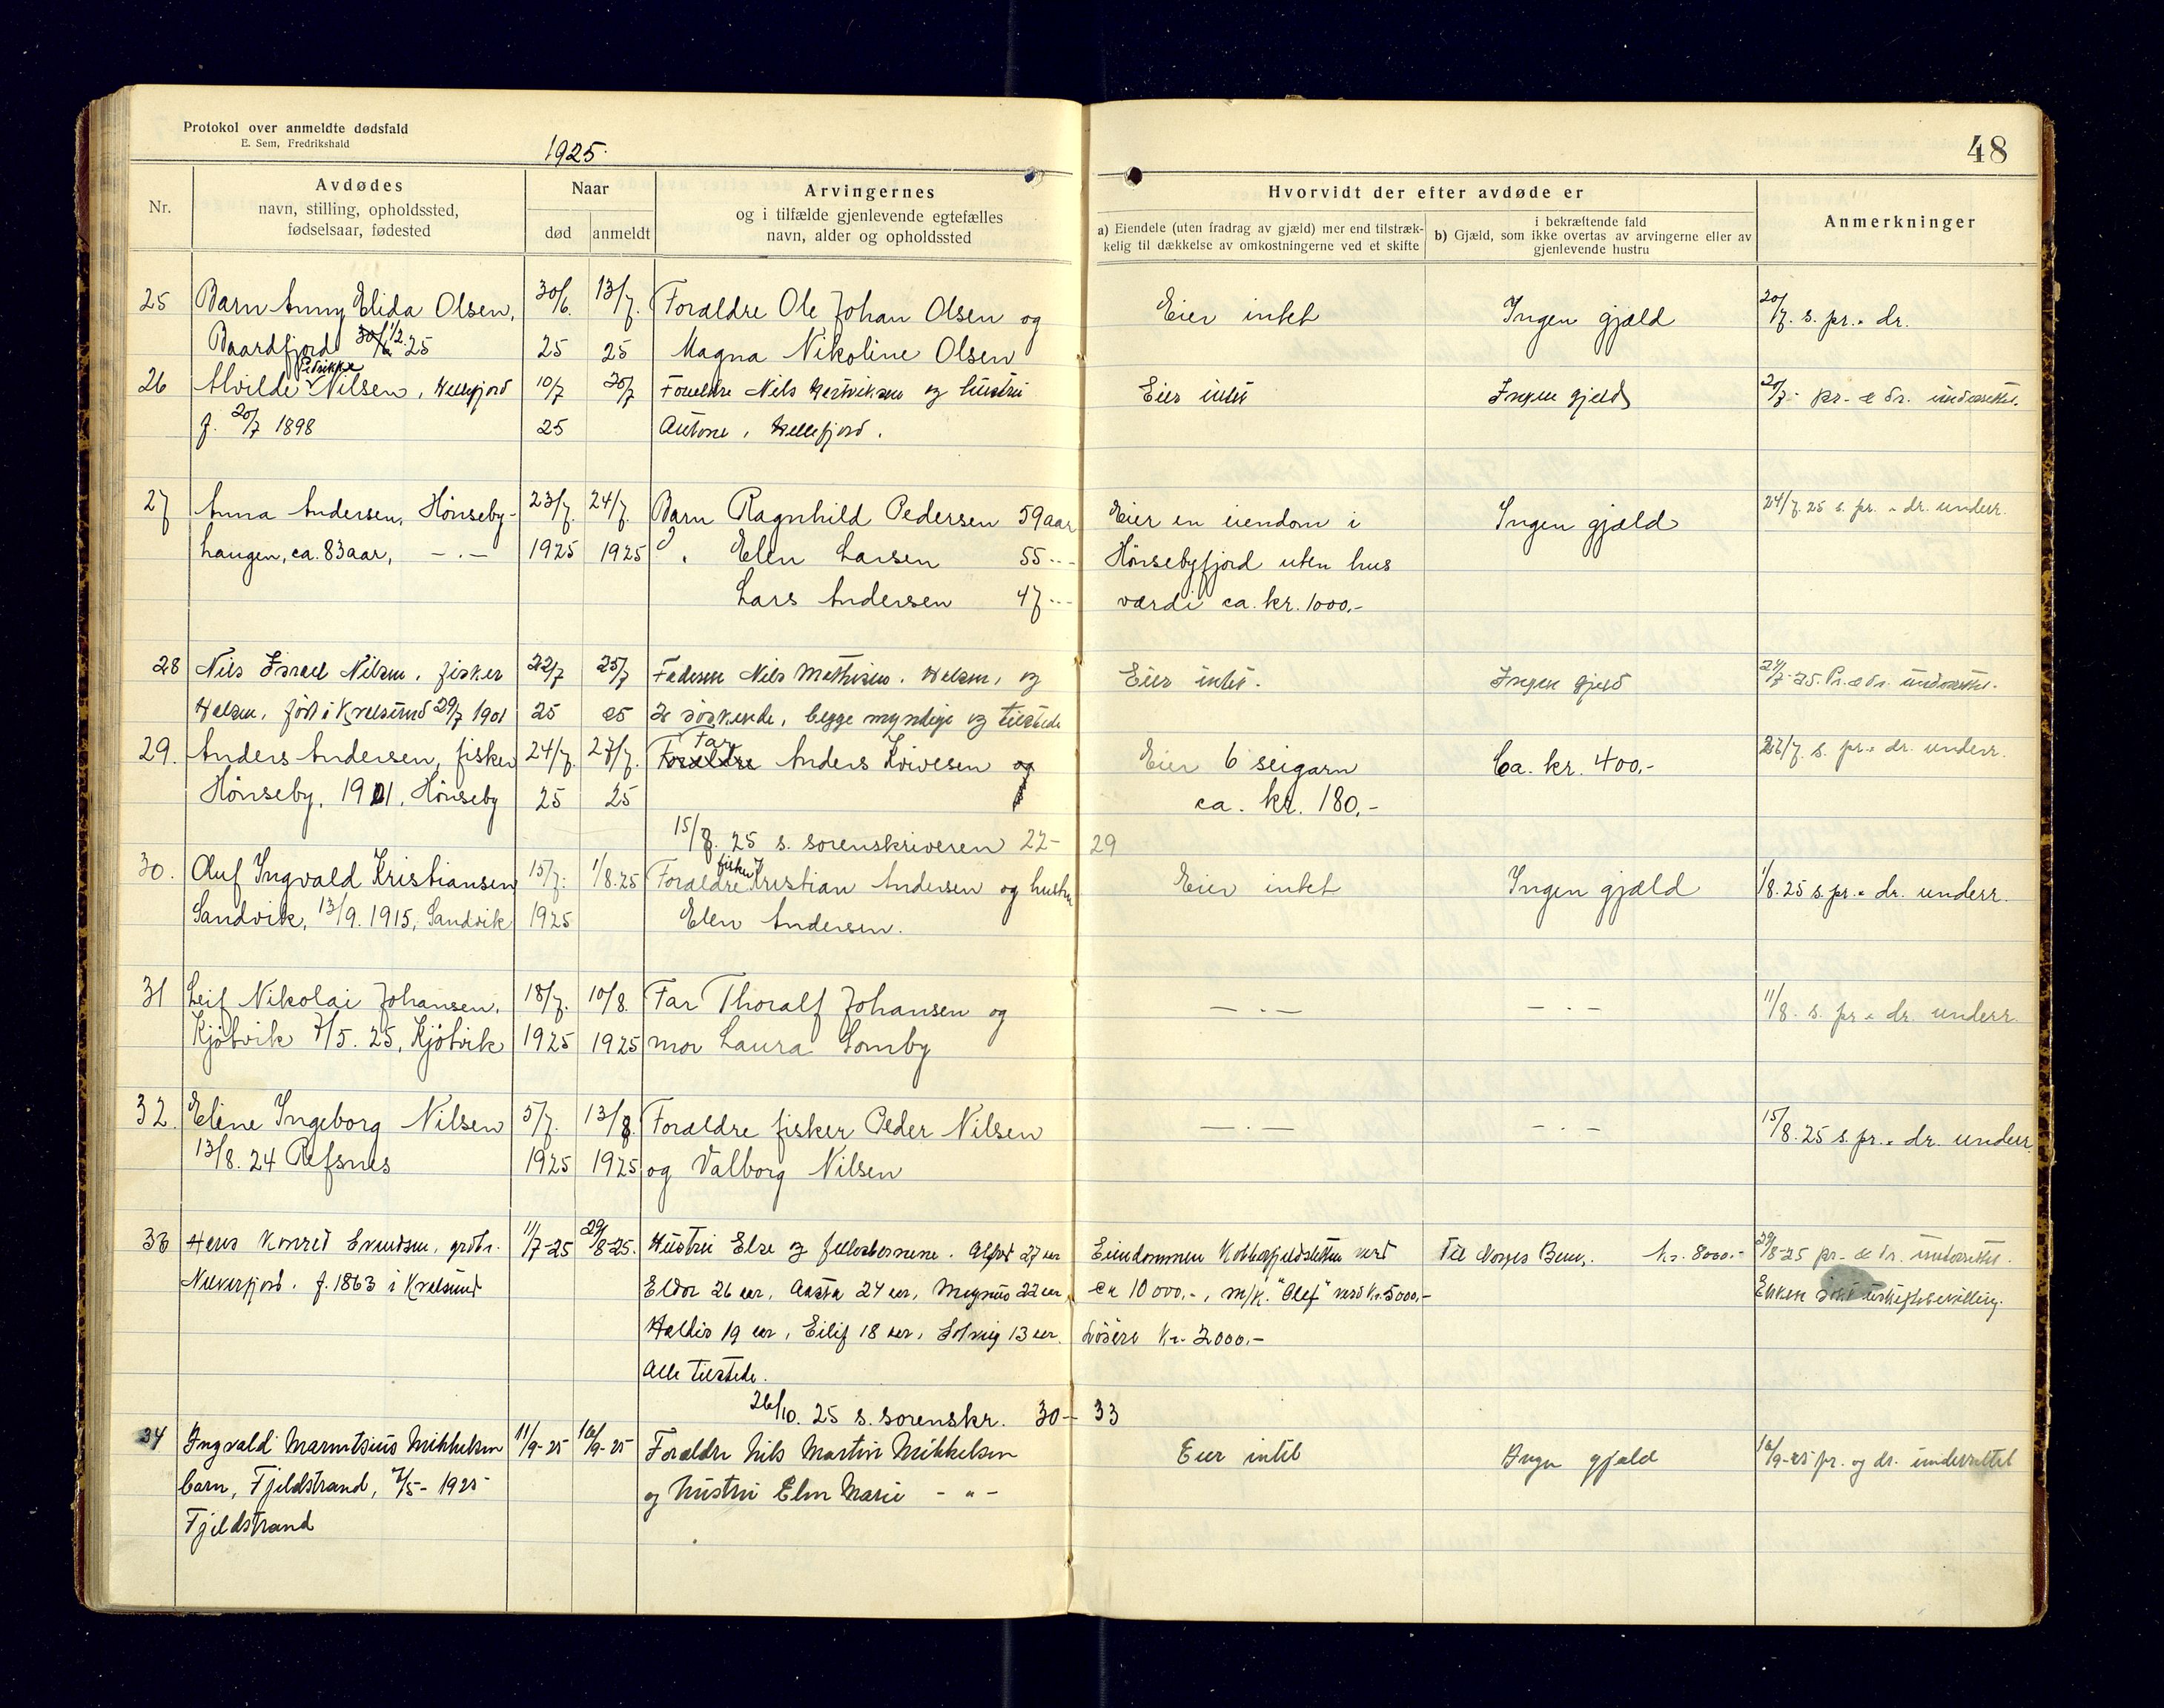 Protokol over anmeldte dødsfald
E. Sem, Fredrikshald
1925.
48
Nr.
Avdødes
navn, stilling, opholdssted,
fødselsaar, fødested
Naar
død
anmeldt
Arvingernes
og i tilfælde gjenlevende egtefælles
navn, alder og opholdssted
Hvorvidt der efter avdøde er
a) Eiendele (uten fradrag av gjæld) mer end tilstræk-
kelig til dækkelse av omkostningerne ved et skifte
i bekræftende fald
b) Gjæld, som ikke overtas av arvingerne eller av
gjenlevende hustru
Anmerkninger
25 Barn Anny Elida Olsen, 30/6. 13/7. Forældre Ole Johan Olsen og Eier intet Ingen gjæld 20/7. s. pr. " dr.
Baardfjord 1/2.25 25 25 Magna Nikoline Olsen
Petrikke
26 Alvilde Nilsen, Hellefjord 10/7 20/7 Forældre Nils Hertviksen og hustru Eier intet Ingen gjeld 20/7- pr. & dr. underrettet.
f. 20/7 1898 25 Antone, Hellefjord.
27 Anna Andersen, Hönseby- 23/7. 24/7. Barn Ragnhild Pedersen 59 aar Eier en eiendom i Ingen gjæld 24/7.25 s. pr. " dr. underr.
haugen, ca. 83 aar, — . — 1925 1925 Elen Larsen 55 Hönsebyfjord uten hus
Lars Andersen 47 værdi ca. kr. 1000.-
28 Nils Israel Nilsen, fisker 22/7 25/7 Faderen Nils Mathisen, og Eier intet. Ingen gjeld 25. Pr. & dr. underrettet.
født i Kvalsund 29/7 1901 25 25 2 søskende, begge myndige og tilstede
Far
29. Anders Andersen, fisker 24/7. 27/7. Forældre Anders Kvivesen og Eier 6 seigarn Ca. kr. 400.- 27/7. s. pr. " dr. underr.
Hönseby, 1901, Hönseby 25 25 ca. kr. 180.-
15/8. 25 s. sorenskriveren 22- 29
fisker
30. Oluf Ingvald Kristiansen 15/7. 1/8.25 Forældre Kristian Andersen og hustru Eier intet Ingen gjæld 1/8.25 s. pr. " dr. underr.
Sandvik, 13/9. 1915, Sandvik 1925 Elen Andersen.
31 Leif Nikolai Johansen, 18/7. 10/8. Far Thoralf Johansen og — . — — . — 11/8. s. pr. " dr. underr.
Kjötvik 7/5. 25, Kjötvik 1925 1925 mor Laura Somby
32. Eline Ingeborg Nilsen 5/7. 13/8. Forældre fisker Peder Nilsen — . — — . — 15/8.25 s. pr. " dr. underr.
13/8. 24 Refsnes 1925 1925 og Valborg Nilsen
33 Hans Konrad grdbr. 11/7-25 29/8-25. Hustru Else og fellesbarnene. Alfred 27 aar Eiendommen verd Til Norges Bank. kr. 8000.- 29/8-25 pr. & dr. underrettet.
f. 1863 i Kvalsund Eldor 26 aar, Aasta 24 aar, Magnus 22 aar, ca 10 000.-, m/k. "Olef" verd kr. 5000,- Enken uskiftebevilling.
Haldis 19 aar, Eilif 18 aar, Solveig 13 aar. Løsøre kr. 2000.-
Alle tilstede.
26/10. 25 s. sorenskr. 30- 33
34 Ingvald Marentsius Mikkelsen 11/9-25 16/9-25 Forældre Nils Martin Mikkelsen Eier intet Ingen gjæld 16/9-25 pr. og dr. underrettet
barn, Fjeldstrand, 7/5- 1925 og hustru Elen Marie - " -
Fjeldstrand